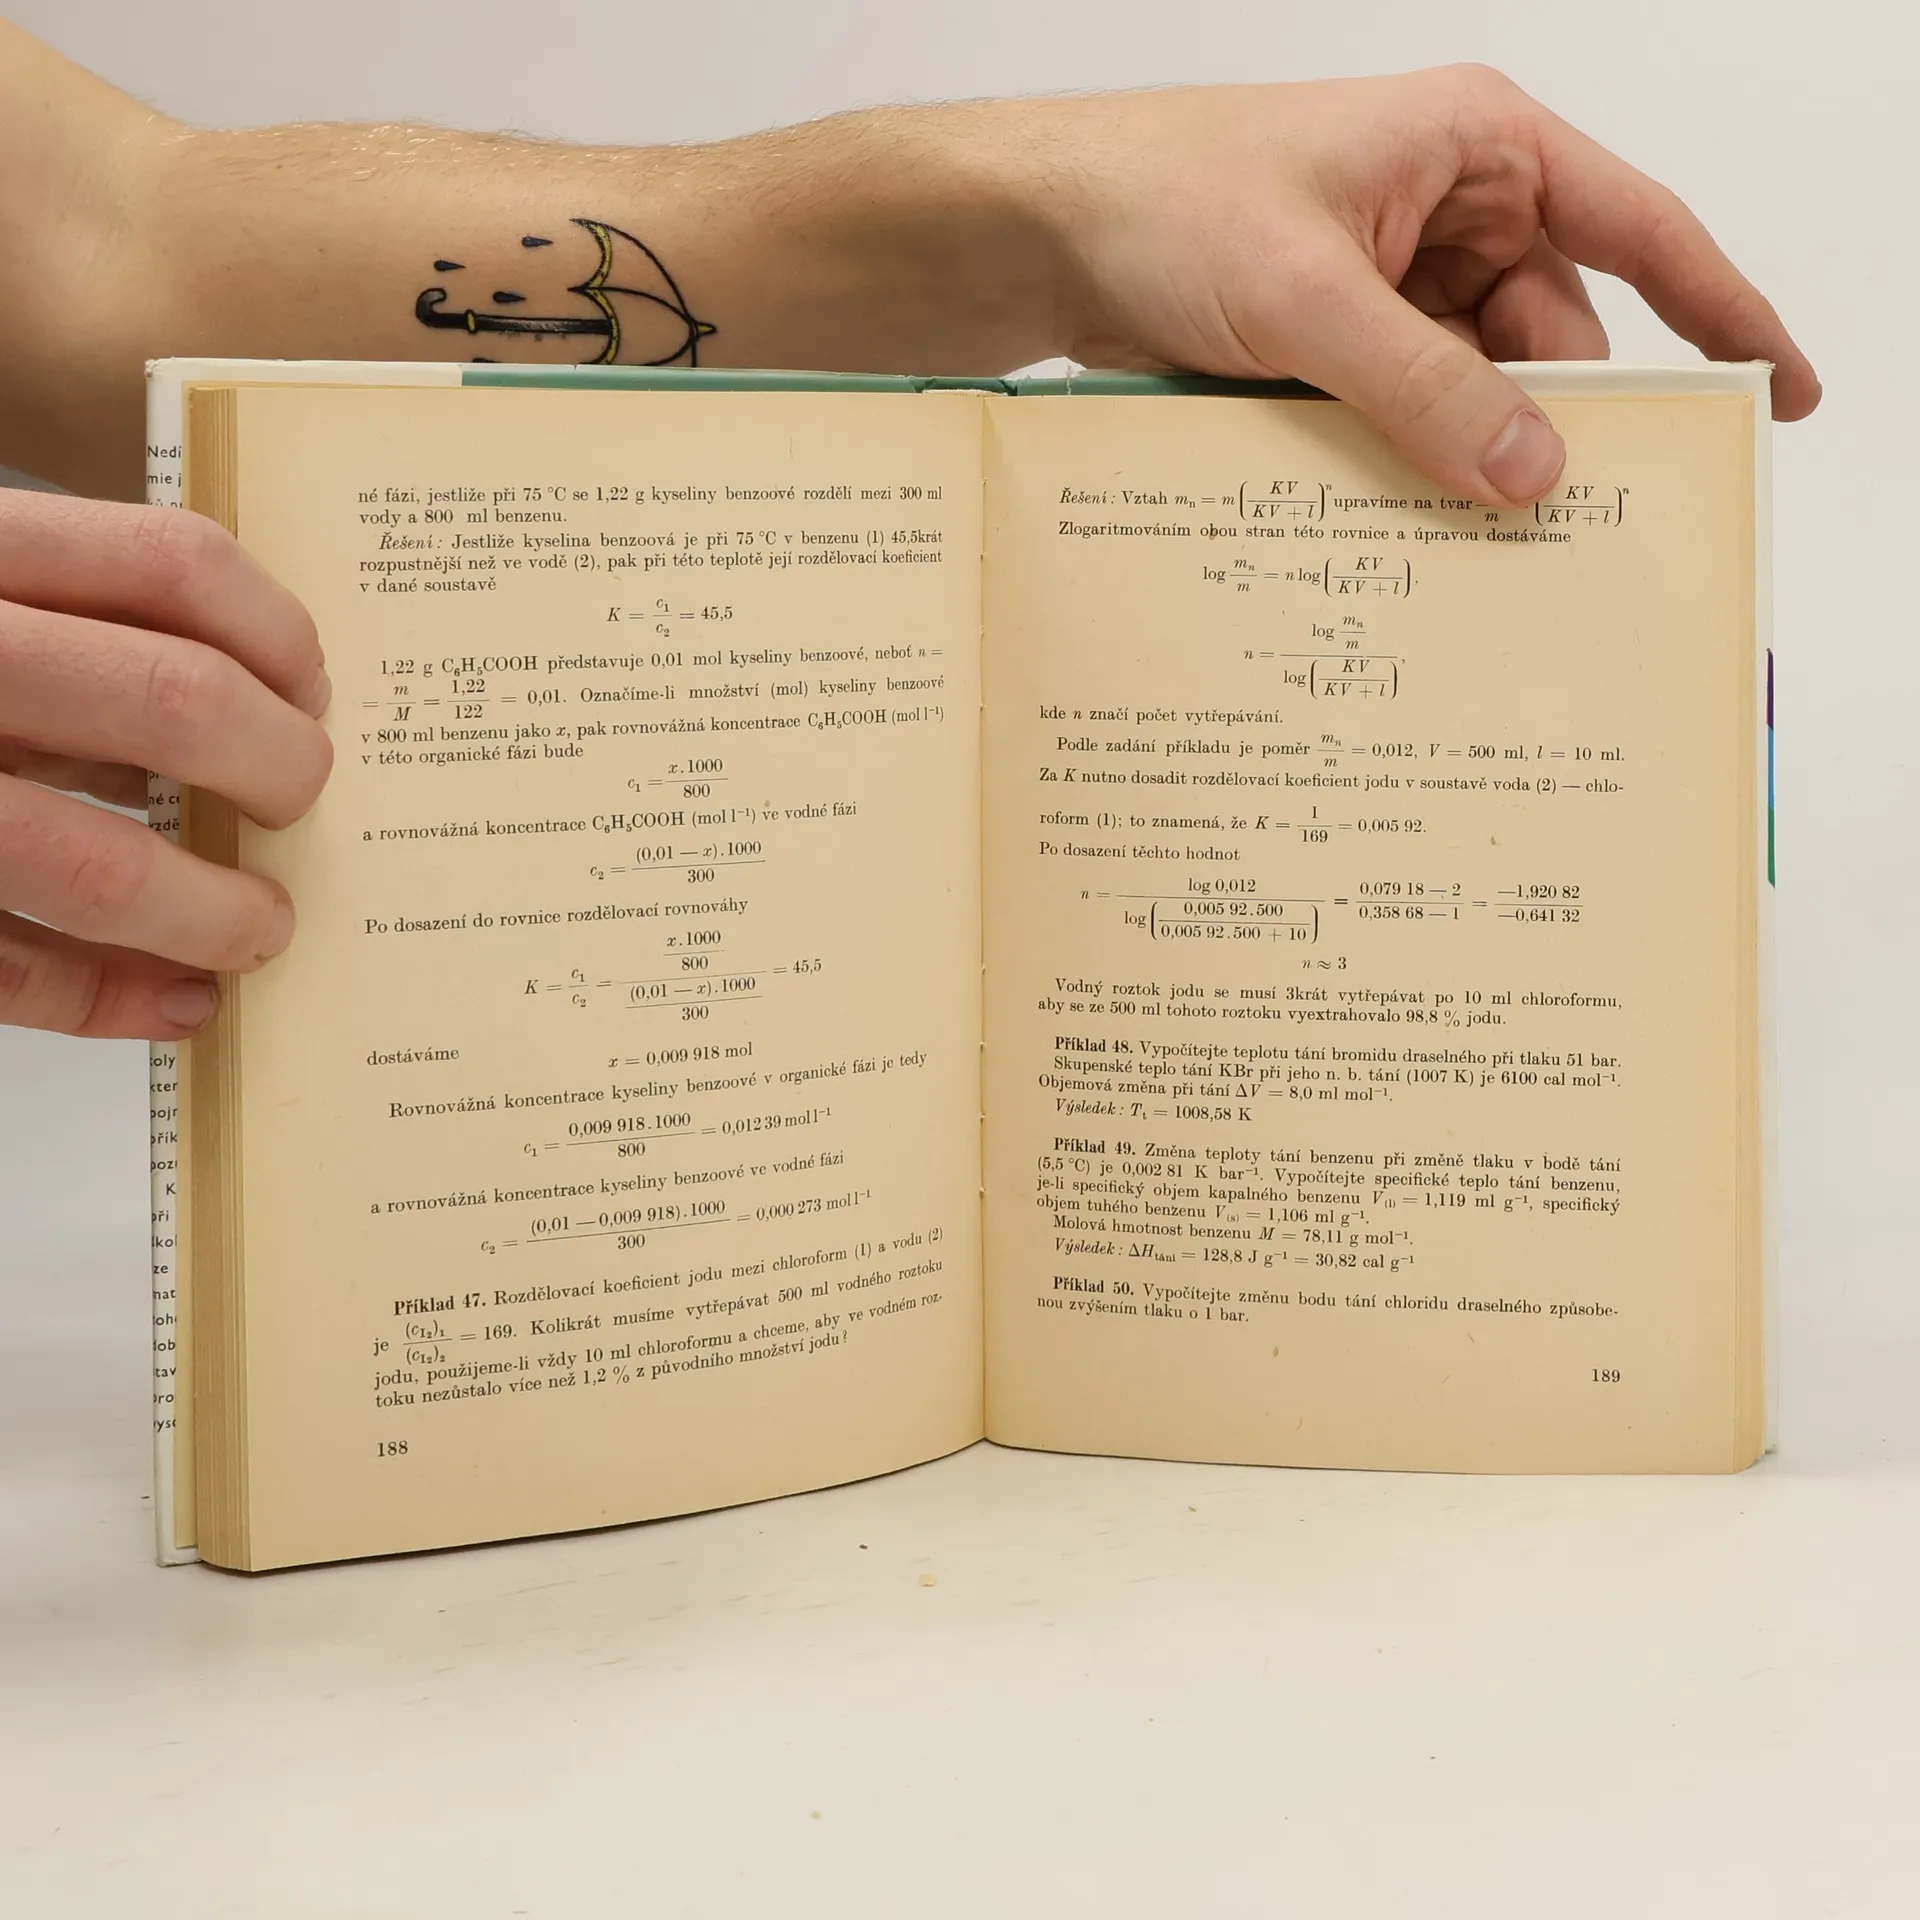 Nedí
mie j
né c
vzdě
oly
kter
pojn
přík
pozn
K
při
ze
nat
dob
stav
pro
né fázi, jestliže při 75 °C se 1,22 g kyseliny benzoové rozdělí mezi 300 ml
vody a 800 ml benzenu.
Řešení: Jestliže kyselina benzoová je při 75 °C v benzenu (1) 45,5krát
rozpustnější než ve vodě (2), pak při této teplotě její rozdělovací koeficient
v dané soustavě
K = c₁/c₂ = 45,5
1,22 g C₆H₅COOH představuje 0,01 mol kyseliny benzoové, neboť n =
= m/M = 1,22/122 = 0,01. Označíme-li množství (mol) kyseliny benzoové
v 800 ml benzenu jako x, pak rovnovážná koncentrace C₆H₅COOH (mol l⁻¹)
v této organické fázi bude
c₁ = x.1000/800
a rovnovážná koncentrace C₆H₅COOH (mol l⁻¹) ve vodné fázi
c₂ = (0,01 — x).1000/300
Po dosazení do rovnice rozdělovací rovnováhy
K = c₁/c₂ = (x.1000/800)/((0,01 — x).1000/300) = 45,5
dostáváme x = 0,009 918 mol
Rovnovážná koncentrace kyseliny benzoové v organické fázi je tedy
c₁ = 0,009 918.1000/800 = 0,012 39 mol l⁻¹
a rovnovážná koncentrace kyseliny benzoové ve vodné fázi
c₂ = (0,01 — 0,009 918).1000/300 = 0,000 273 mol l⁻¹
Příklad 47. Rozdělovací koeficient jodu mezi chloroform (1) a vodu (2)
je (c_I₂)₁/(c_I₂)₂ = 169. Kolikrát musíme vytřepávat 500 ml vodného roztoku
jodu, použijeme-li vždy 10 ml chloroformu a chceme, aby ve vodném roz-
toku nezůstalo více než 1,2 % z původního množství jodu?
188
Řešení: Vztah mₙ = m(KV/(KV + l))ⁿ upravíme na tvar m = (KV/(KV + l))ⁿ
Zlogaritmováním obou stran této rovnice a úpravou dostáváme
log mₙ/m = n log(KV/(KV + l)),
n = (log mₙ/m)/(log(KV/(KV + l))),
kde n značí počet vytřepávání.
Podle zadání příkladu je poměr mₙ/m = 0,012, V = 500 ml, l = 10 ml.
Za K nutno dosadit rozdělovací koeficient jodu v soustavě voda (2) — chlo-
roform (1); to znamená, že K = 1/169 = 0,005 92.
Po dosazení těchto hodnot
n = log 0,012/log(0,005 92.500/(0,005 92.500 + 10)) = (0,079 18 — 2)/(0,358 68 — 1) = —1,920 82/—0,641 32
n ≈ 3
Vodný roztok jodu se musí 3krát vytřepávat po 10 ml chloroformu,
aby se ze 500 ml tohoto roztoku vyextrahovalo 98,8 % jodu.
Příklad 48. Vypočítejte teplotu tání bromidu draselného při tlaku 51 bar.
Skupenské teplo tání KBr při jeho n. b. tání (1007 K) je 6100 cal mol⁻¹.
Objemová změna při tání ΔV = 8,0 ml mol⁻¹.
Výsledek: Tₜ = 1008,58 K
Příklad 49. Změna teploty tání benzenu při změně tlaku v bodě tání
(5,5 °C) je 0,002 81 K bar⁻¹. Vypočítejte specifické teplo tání benzenu,
je-li specifický objem kapalného benzenu V₍ₗ₎ = 1,119 ml g⁻¹, specifický
objem tuhého benzenu V₍ₛ₎ = 1,106 ml g⁻¹.
Molová hmotnost benzenu M = 78,11 g mol⁻¹.
Výsledek: ΔH_tání = 128,8 J g⁻¹ = 30,82 cal g⁻¹
Příklad 50. Vypočítejte změnu bodu tání chloridu draselného způsobe-
nou zvýšením tlaku o 1 bar.
189